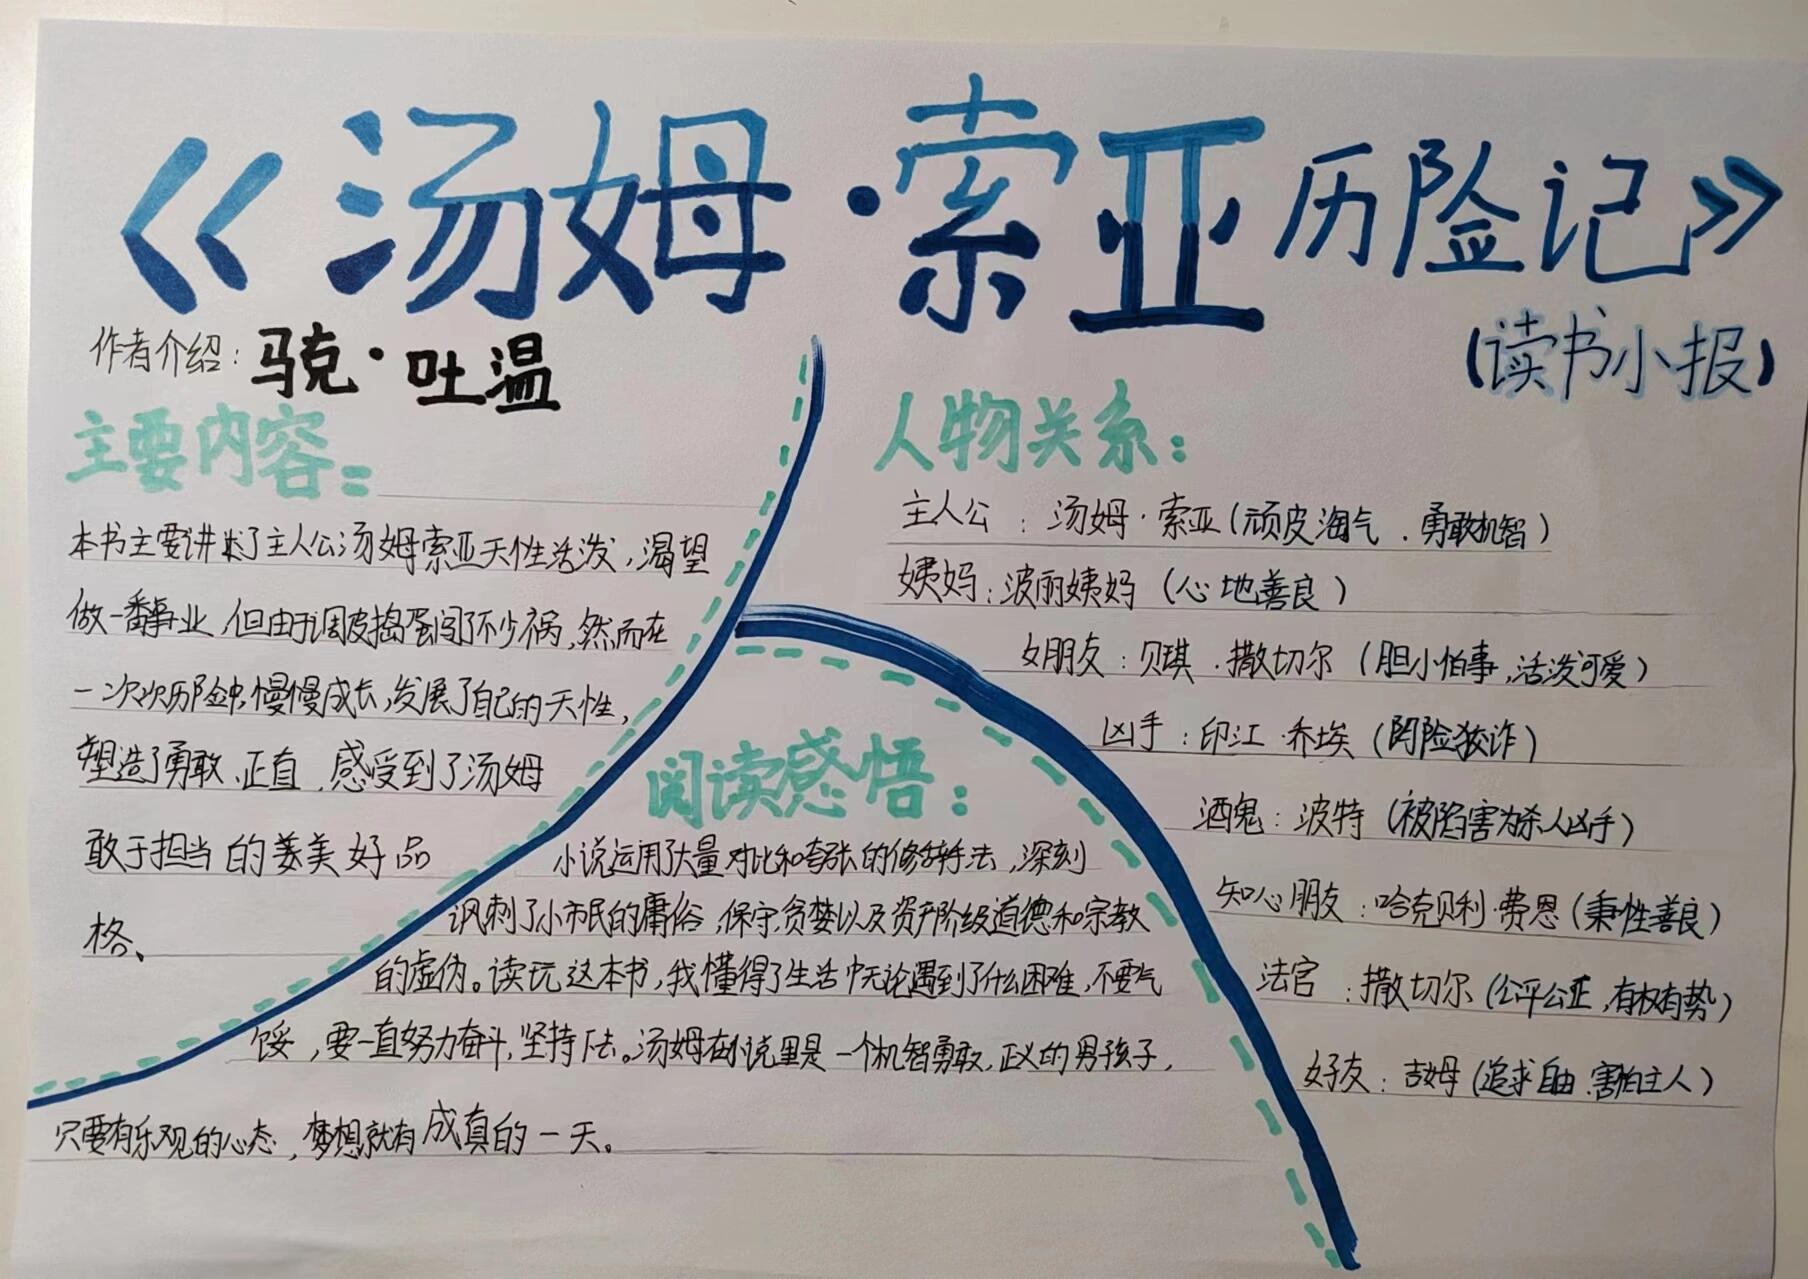 《汤姆·索亚历险记》
(读书小报)
作者介绍：马克·吐温
主要内容：
本书主要讲述了主人公汤姆索亚天性活泼，渴望
做一番事业，但由于调皮捣蛋闯了不少祸，然而在
一次次历险中，慢慢成长，发展了自己的天性，
塑造了勇敢、正直，感受到了汤姆
敢于担当的美好品
格、
人物关系：
主人公：汤姆·索亚(顽皮淘气、勇敢机智)
姨妈：波丽姨妈(心地善良)
女朋友：贝琪·撒切尔(胆小怕事，活泼可爱)
凶手：印江·乔埃(阴险狡诈)
酒鬼：波特(被陷害为杀人凶手)
知心朋友：哈克贝利·费恩(秉性善良)
法官：撒切尔(公平公正，有权有势)
好友：吉姆(追求自由、害怕主人)
阅读感悟：
小说运用了大量对比和夸张的修辞手法，深刻
讽刺了小市民的庸俗，保守，贪婪以及资产阶级道德和宗教
的虚伪。读玩这本书，我懂得了生活中无论遇到了什么困难，不要气
馁，要一直努力奋斗，坚持下去。汤姆在小说里是一个机智勇敢，正义的男孩子，
只要有乐观的心态，梦想就有成真的一天。